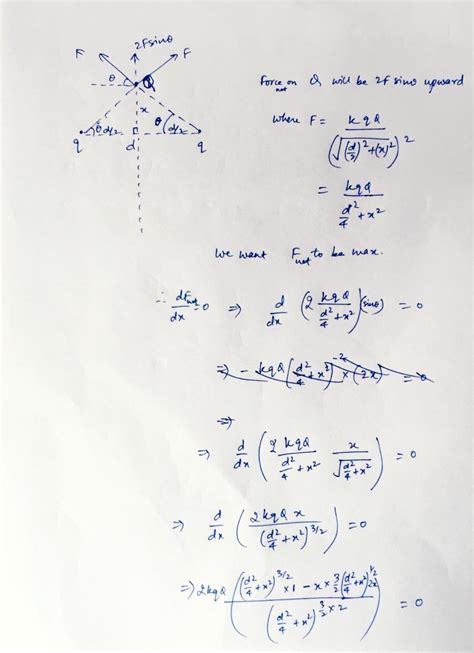 2Fsinθ
F F
θ Q
x
θ d/2 θ (d/2
q d q
Force on Q will be 2F sinθ upward
net
where F = kqQ / (√((d/2)² + (x)²))²
= kqQ / (d²/4 + x²)
We want Fnet to be max.
∴ dFnet/dx = 0 ⇒ d/dx (2 kqQ / (d²/4 + x²)) (sinθ) = 0
⇒ - kqQ (d²/4 + x²)⁻² × (2x) = 0
⇒
⇒ d/dx (2 kqQ / (d²/4 + x²) x / √(d²/4 + x²)) = 0
⇒ d/dx (2kqQ x / (d²/4 + x²)^3/2) = 0
⇒ 2kqQ ((d²/4 + x²)^3/2 × 1 - x × 3/2 (d²/4 + x²)^1/2 2x) / (d²/4 + x²)^(3/2 × 2) = 0